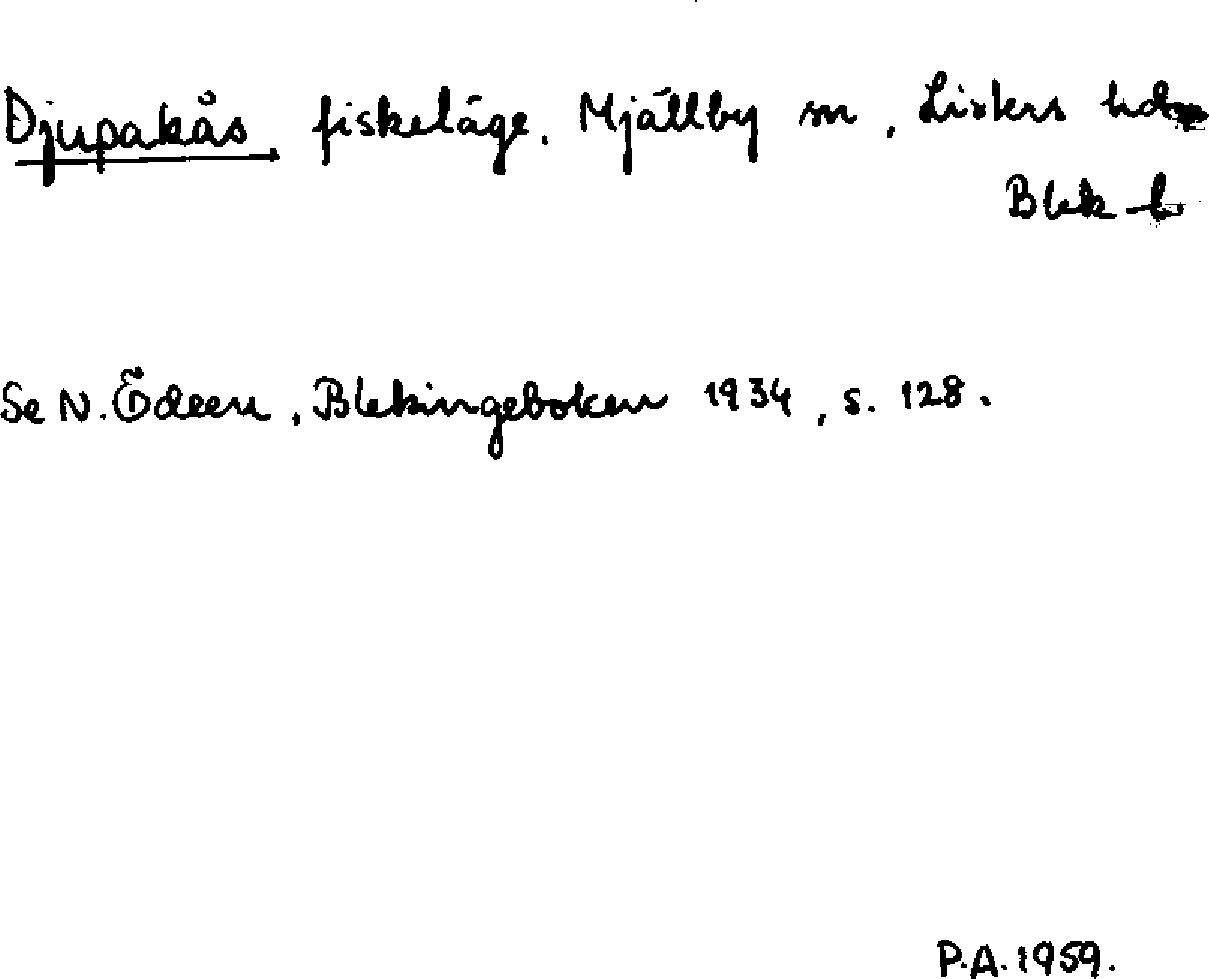 Djupakås fiskeläge. Mjällby sn, Listers hd
Blek l.
Se N. Ödeen, Blekingeboken 1934, s. 128.
P.A. 1959.